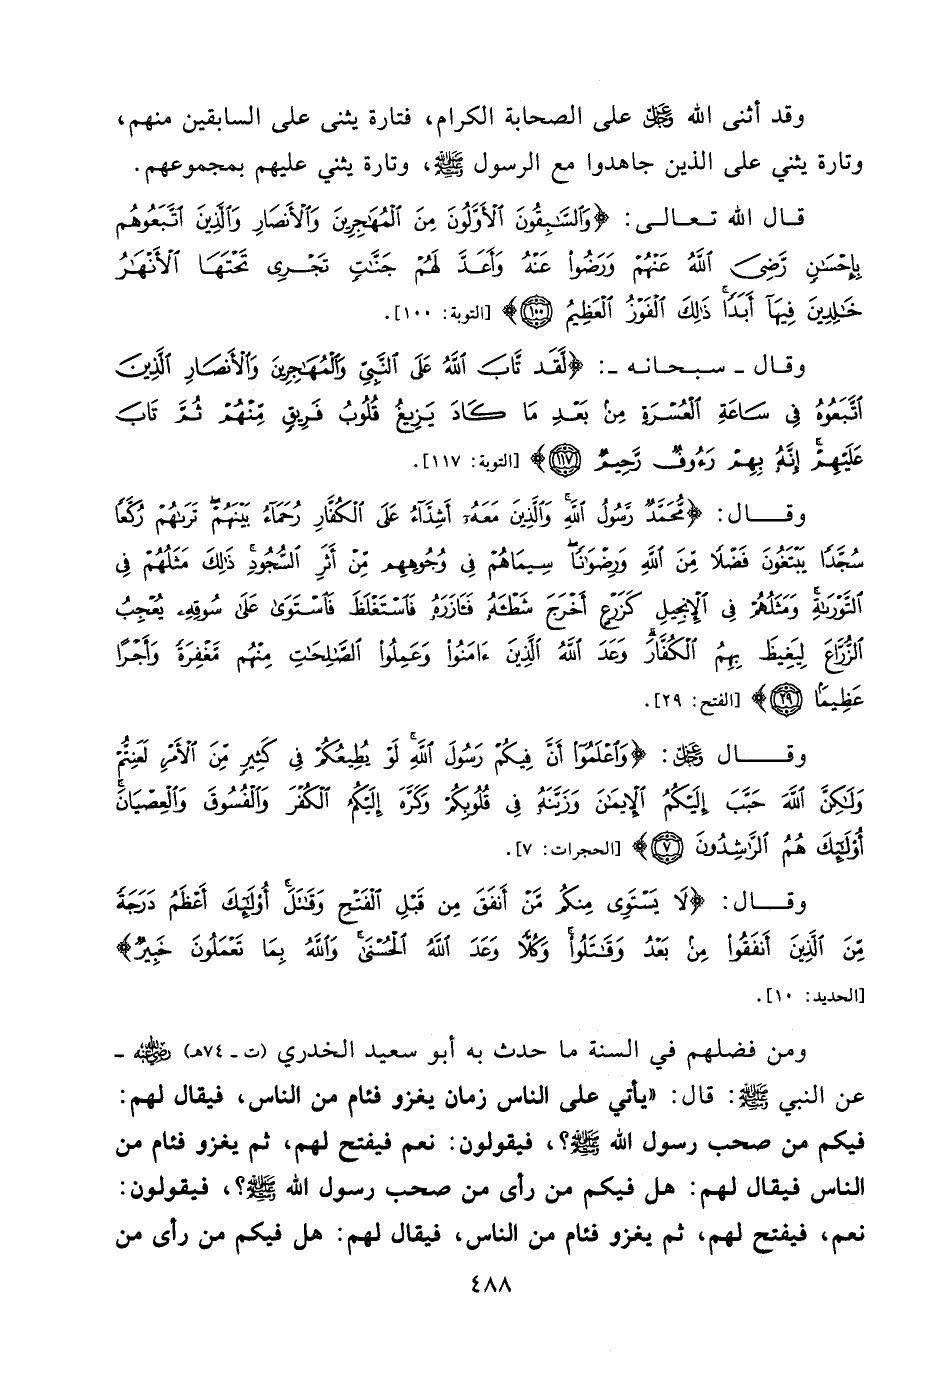 وقد أثنى الله ﷻ على الصحابة الكرام، فتارة يثني على السابقين منهم،
وتارة يثني على الذين جاهدوا مع الرسول ﷺ، وتارة يثني عليهم بمجموعهم.
قال الله تعالى: ﴿وَٱلسَّٰبِقُونَ ٱلْأَوَّلُونَ مِنَ ٱلْمُهَٰجِرِينَ وَٱلْأَنصَارِ وَٱلَّذِينَ ٱتَّبَعُوهُم
بِإِحْسَٰنٍ رَّضِىَ ٱللَّهُ عَنْهُمْ وَرَضُوا۟ عَنْهُ وَأَعَدَّ لَهُمْ جَنَّٰتٍ تَجْرِى تَحْتَهَا ٱلْأَنْهَٰرُ
خَٰلِدِينَ فِيهَآ أَبَدًا ۚ ذَٰلِكَ ٱلْفَوْزُ ٱلْعَظِيمُ ١٠٠﴾ [التوبة: ١٠٠].
وقال - سبحانه -: ﴿لَّقَد تَّابَ ٱللَّهُ عَلَى ٱلنَّبِىِّ وَٱلْمُهَٰجِرِينَ وَٱلْأَنصَارِ ٱلَّذِينَ
ٱتَّبَعُوهُ فِى سَاعَةِ ٱلْعُسْرَةِ مِنۢ بَعْدِ مَا كَادَ يَزِيغُ قُلُوبُ فَرِيقٍ مِّنْهُمْ ثُمَّ تَابَ
عَلَيْهِمْ ۚ إِنَّهُۥ بِهِمْ رَءُوفٌ رَّحِيمٌ ١١٧﴾ [التوبة: ١١٧].
وقال: ﴿مُّحَمَّدٌ رَّسُولُ ٱللَّهِ ۚ وَٱلَّذِينَ مَعَهُۥٓ أَشِدَّآءُ عَلَى ٱلْكُفَّارِ رُحَمَآءُ بَيْنَهُمْ ۖ تَرَىٰهُمْ رُكَّعًا
سُجَّدًا يَبْتَغُونَ فَضْلًا مِّنَ ٱللَّهِ وَرِضْوَٰنًا ۖ سِيمَاهُمْ فِى وُجُوهِهِم مِّنْ أَثَرِ ٱلسُّجُودِ ۚ ذَٰلِكَ مَثَلُهُمْ فِى
ٱلتَّوْرَىٰةِ ۚ وَمَثَلُهُمْ فِى ٱلْإِنجِيلِ كَزَرْعٍ أَخْرَجَ شَطْـَٔهُۥ فَـَٔازَرَهُۥ فَٱسْتَغْلَظَ فَٱسْتَوَىٰ عَلَىٰ سُوقِهِۦ يُعْجِبُ
ٱلزُّرَّاعَ لِيَغِيظَ بِهِمُ ٱلْكُفَّارَ ۗ وَعَدَ ٱللَّهُ ٱلَّذِينَ ءَامَنُوا۟ وَعَمِلُوا۟ ٱلصَّٰلِحَٰتِ مِنْهُم مَّغْفِرَةً وَأَجْرًا
عَظِيمًۢا ٢٩﴾ [الفتح: ٢٩].
وقال ﷻ: ﴿وَٱعْلَمُوٓا۟ أَنَّ فِيكُمْ رَسُولَ ٱللَّهِ ۚ لَوْ يُطِيعُكُمْ فِى كَثِيرٍ مِّنَ ٱلْأَمْرِ لَعَنِتُّمْ
وَلَٰكِنَّ ٱللَّهَ حَبَّبَ إِلَيْكُمُ ٱلْإِيمَٰنَ وَزَيَّنَهُۥ فِى قُلُوبِكُمْ وَكَرَّهَ إِلَيْكُمُ ٱلْكُفْرَ وَٱلْفُسُوقَ وَٱلْعِصْيَانَ ۚ
أُو۟لَٰٓئِكَ هُمُ ٱلرَّٰشِدُونَ ٧﴾ [الحجرات: ٧].
وقال: ﴿لَا يَسْتَوِى مِنكُم مَّنْ أَنفَقَ مِن قَبْلِ ٱلْفَتْحِ وَقَٰتَلَ ۚ أُو۟لَٰٓئِكَ أَعْظَمُ دَرَجَةً
مِّنَ ٱلَّذِينَ أَنفَقُوا۟ مِنۢ بَعْدُ وَقَٰتَلُوا۟ ۚ وَكُلًّا وَعَدَ ٱللَّهُ ٱلْحُسْنَىٰ ۚ وَٱللَّهُ بِمَا تَعْمَلُونَ خَبِيرٌ﴾
[الحديد: ١٠].
ومن فضلهم في السنة ما حدث به أبو سعيد الخدري (ت - ٧٤هـ) رضي الله عنه -
عن النبي ﷺ: قال: «يأتي على الناس زمان يغزو فئام من الناس، فيقال لهم:
فيكم من صحب رسول الله ﷺ؟، فيقولون: نعم فيفتح لهم، ثم يغزو فئام من
الناس فيقال لهم: هل فيكم من رأى من صحب رسول الله ﷺ؟، فيقولون:
نعم، فيفتح لهم، ثم يغزو فئام من الناس، فيقال لهم: هل فيكم من رأى من
٤٨٨